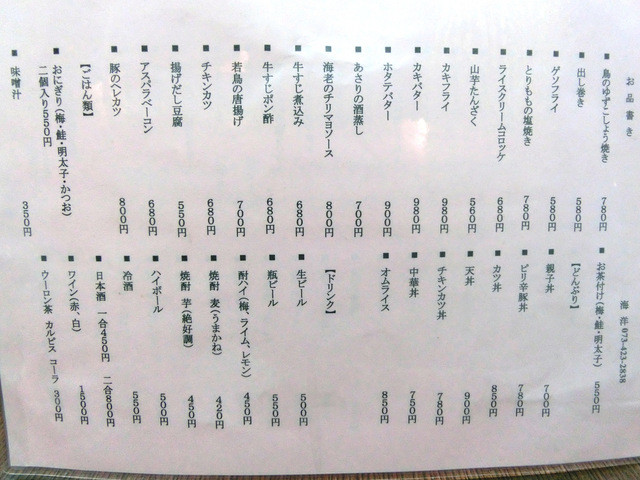 お品書き
■ 鳥のゆずこしょう焼き 780円
■ 出し巻き 580円
■ ゲソフライ 580円
■ とりももの塩焼き 780円
■ ライスクリームコロッケ 680円
■ 山芋たんざく 560円
■ カキフライ 980円
■ カキバター 980円
■ ホタテバター 900円
■ あさりの酒蒸し 700円
■ 海老のチリマヨソース 800円
■ 牛すじ煮込み 680円
■ 牛すじポン酢 680円
■ 若鳥の唐揚げ 700円
■ チキンカツ 680円
■ 揚げだし豆腐 550円
■ アスパラベーコン 680円
■ 豚のヘレカツ 800円
【ごはん類】
■ おにぎり(梅・鮭・明太子・かつお)
二個入り550円
■ 味噌汁 350円
海洋 073-423-2838
■ お茶付け(梅・鮭・明太子) 550円
【どんぶり】
■ 親子丼 700円
■ ピリ辛豚丼 780円
■ カツ丼 850円
■ 天丼 900円
■ チキンカツ丼 780円
■ 中華丼 750円
■ オムライス 850円
【ドリンク】
■ 生ビール 500円
■ 瓶ビール 550円
■ 酎ハイ(梅、ライム、レモン) 450円
■ 焼酎 麦(うまかね) 420円
■ 焼酎 芋(絶好調) 450円
■ ハイボール 500円
■ 冷酒 550円
■ 日本酒 一合450円 二合800円
■ ワイン(赤、白) 1500円
■ ウーロン茶 カルピス コーラ 300円